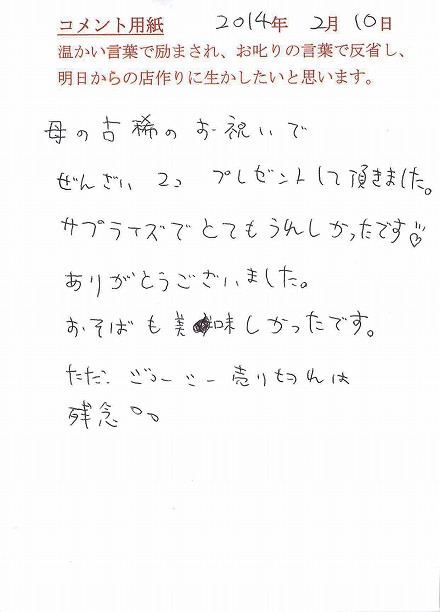 コメント用紙 2014年 2月 10日
温かい言葉で励まされ、お叱りの言葉で反省し、
明日からの店作りに生かしたいと思います。
母の古稀のお祝いで
ぜんざい 2つ プレゼントして頂きました。
サプライズでとてもうれしかったです
ありがとうございました。
おそばも美味しかったです。
ただ、 売り切れは
残念